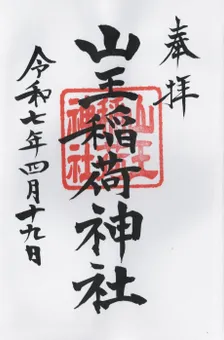 奉拝
山王稲荷神社
山王稲荷神社
令和七年四月十九日